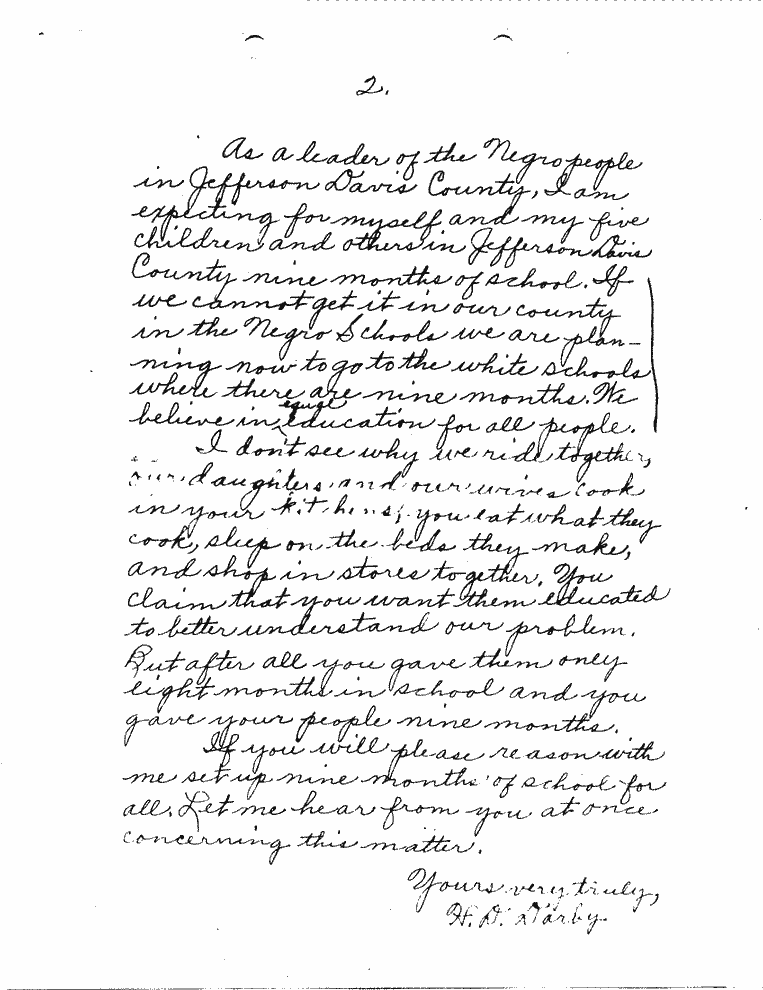 2.
As a leader of the Negro people
in Jefferson Davis County, I am
expecting for myself and my five
children and others in Jefferson Davis
County nine months of school. If
we cannot get it in our county
in the Negro Schools we are plan-
ning now to go to the white schools
where there are nine months. We
believe in equal education for all people.
I don't see why we ride together,
our daughters and our wives cook
in your kitchens, you eat what they
cook, sleep on the beds they make,
and shop in stores together. You
claim that you want them educated
to better understand our problem.
But after all you gave them only
eight months in school and you
gave your people nine months.
If you will please reason with
me set up nine months of school for
all. Let me hear from you at once
concerning this matter.
Yours very truly,
H. D. Darby